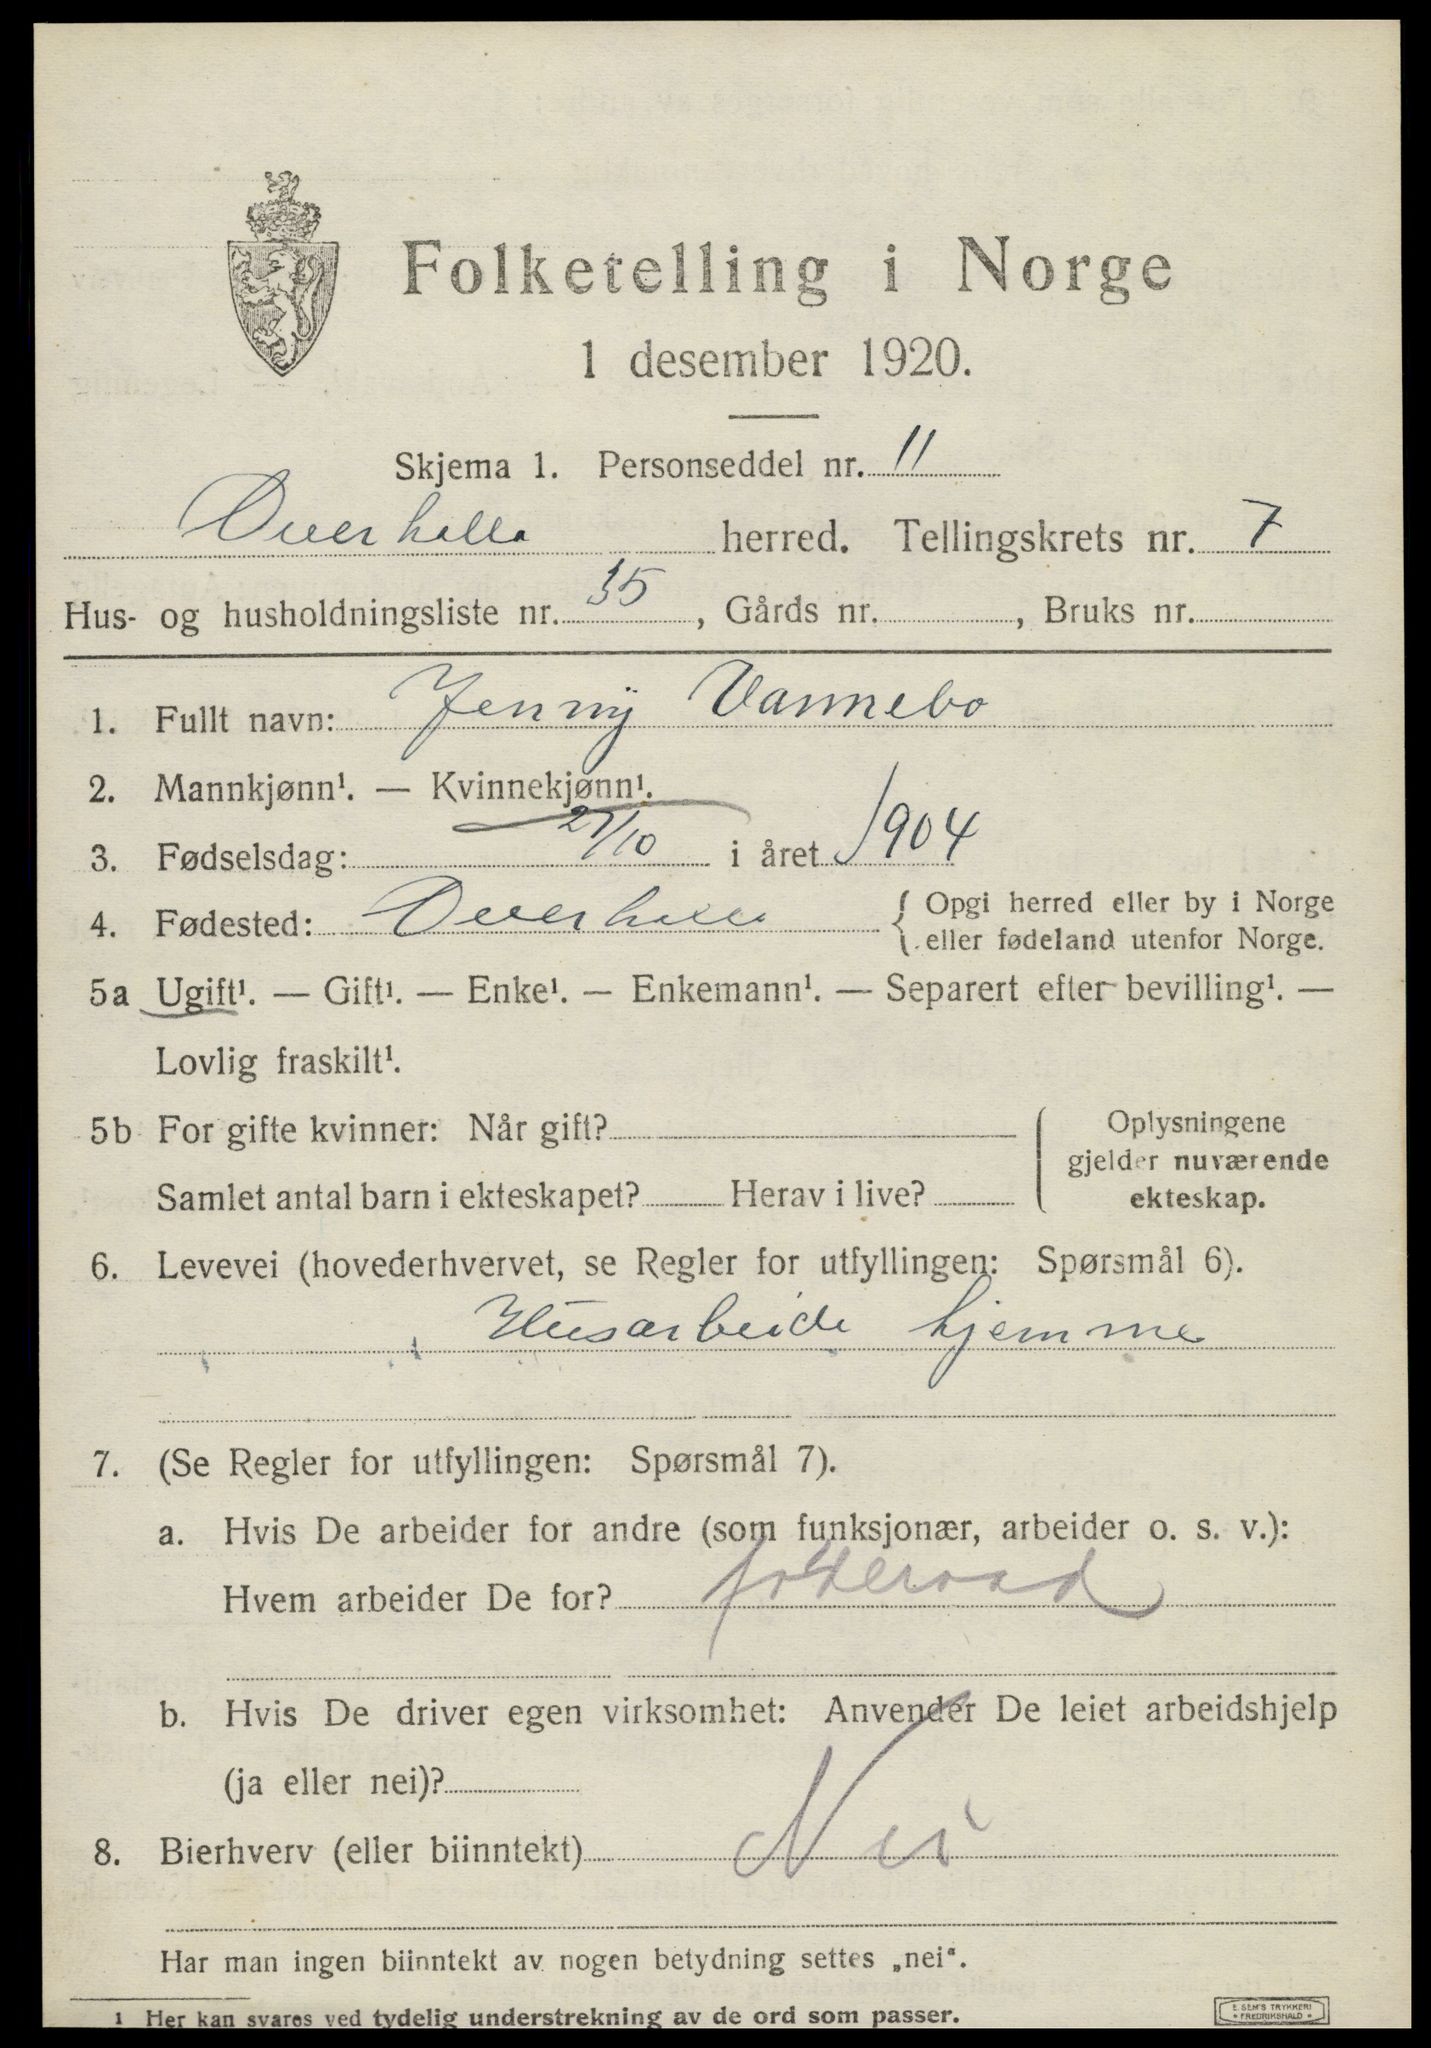 Folketelling i Norge
1 desember 1920.
Skjema 1. Personseddel nr. 11
Overhalla herred. Tellingskrets nr. 7
Hus- og husholdningsliste nr. 35, Gårds nr. , Bruks nr.
1. Fullt navn: Jenny Vannebo
2. Mannkjønn¹. — Kvinnekjønn¹.
3. Fødselsdag: 27/10 i året 1904
4. Fødested: Overhalla { Opgi herred eller by i Norge
eller fødeland utenfor Norge.
5a Ugift¹. — Gift¹. — Enke¹. — Enkemann¹. — Separert efter bevilling¹. —
Lovlig fraskilt¹.
5b For gifte kvinner: Når gift?
Samlet antal barn i ekteskapet? Herav i live?
Oplysningene
gjelder nuværende
ekteskap.
6. Levevei (hovederhvervet, se Regler for utfyllingen: Spørsmål 6).
Husarbeide hjemme
7. (Se Regler for utfyllingen: Spørsmål 7).
a. Hvis De arbeider for andre (som funksjonær, arbeider o. s. v.):
Hvem arbeider De for?
b. Hvis De driver egen virksomhet: Anvender De leiet arbeidshjelp
(ja eller nei)?
8. Bierhverv (eller biinntekt) Nei
Har man ingen biinntekt av nogen betydning settes „nei“.
1 Her kan svares ved tydelig understrekning av de ord som passer.
E. SEM'S TRYKKERI
* FREDRIKSHALD *